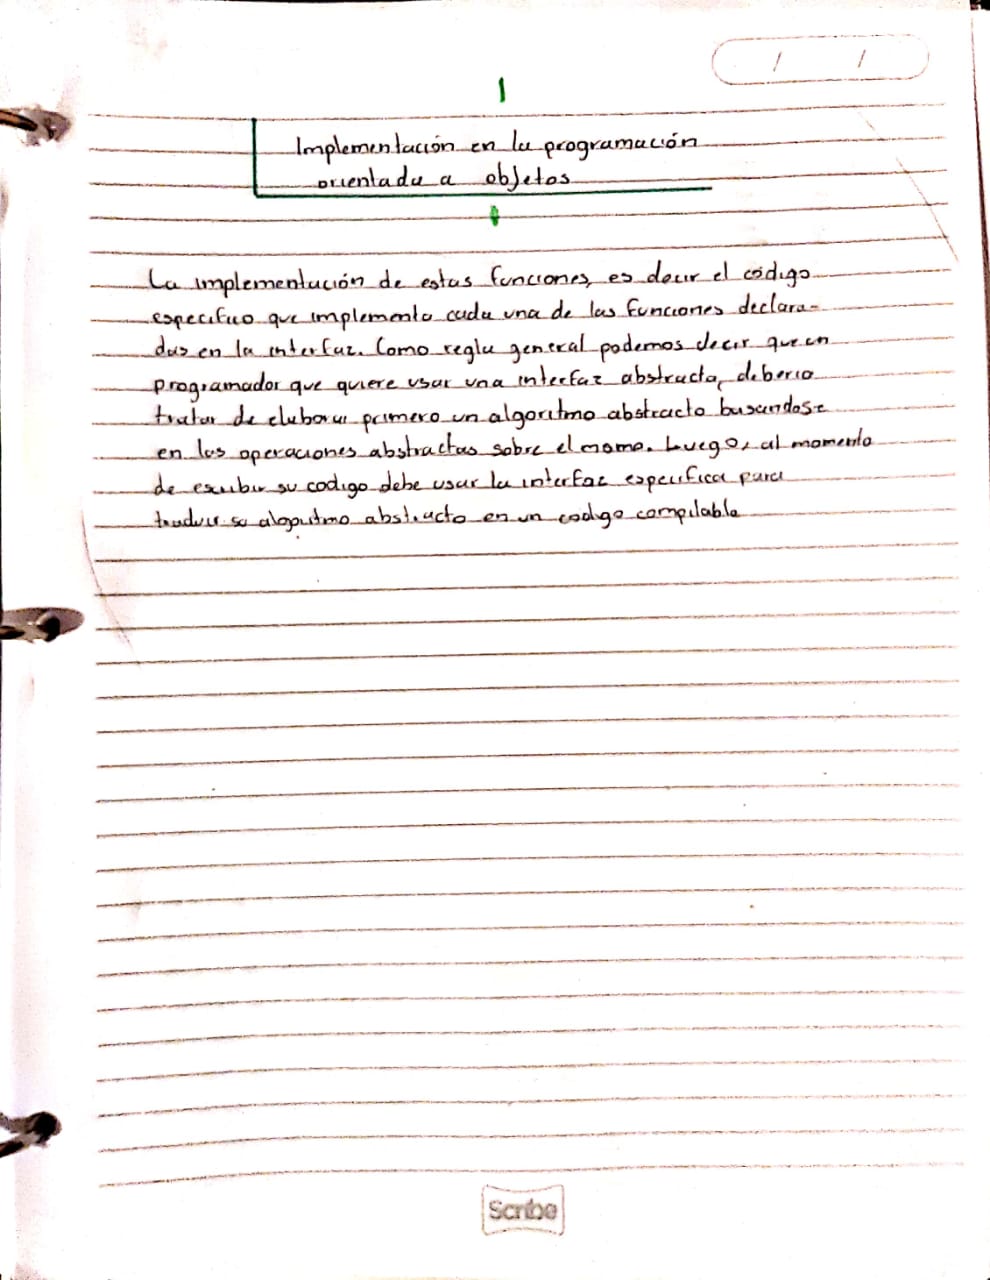 Implementación en la programación
orientada a objetos
La implementación de estas funciones, es decir el código
especifico que implementa cada una de las funciones declara-
das en la interfaz. Como regla general podemos decir que un
programador que quiere usar una interfaz abstracta, deberia
tratar de elaborar primero un algoritmo abstracto basandose
en las operaciones abstractas sobre el mismo. Luego, al momento
de escribir su codigo debe usar la interfaz especifica para
traducir su algoritmo abstracto en un codigo compilable
Scribe